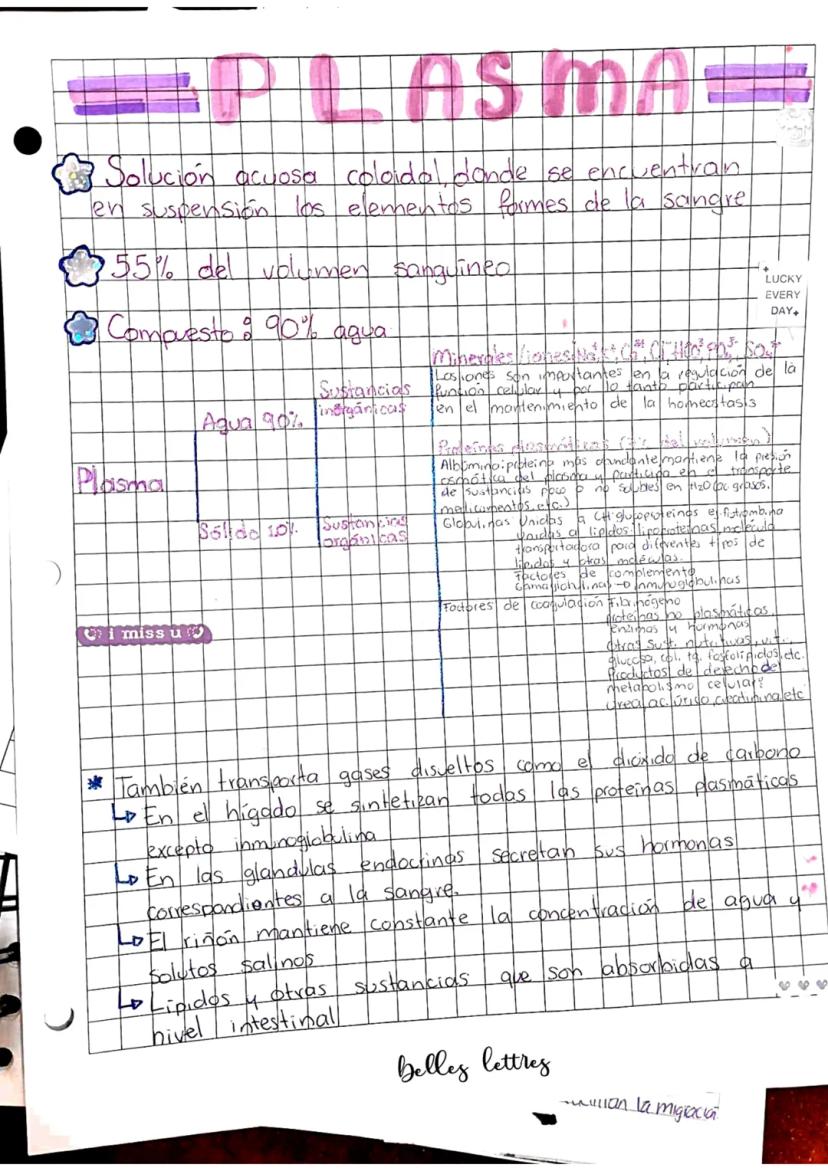 PLASMA
Solución acuosa coloidal, donde se encuentran
en suspensión los elementos formes de la sangre
55% del volumen sanguineo
LUCKY
EVERY
DAY
Compuesto: 90% agua
Minerales / iones
Los iones son importantes en la regulación de la
función celular y por lo tanto participan
en el mantenimiento de la homeostasis
Sustancias
inorgánicas
Agua 90%
Proteínas plasmáticas del volumen)
Albumina: proteína más abundante, mantiene la presión
osmótica del plasma y participa en el transporte
de sustancias poco o no solubles en H2O (ac grasos,
medicamentos, etc.)
Plasma
Sólido 10%
Sustancias
orgánicas
Globulinas Unidas a CH: glucoproteinas ej.
Unidas a lípidos: lipoproteinas, molécula
transportadora para diferentes tipos de
lípidos y otras moléculas.
Factores de complemento
inmunoglobulinas
Factores de coagulación Fibrinógeno
proteínas no plasmáticas,
enzimas y hormonas
otras sust. nutritivas, vit.
glucosa, col. tg. fosfolípidos, etc.
Productos de desecho del
metabolismo celular:
urea, ac. úrico, creatinina, etc
i miss u
* También transporta gases disueltos como el dioxido de carbono
↳ En el hígado se sintetizan todas las proteínas plasmáticas
excepto inmunoglobulina
↳ En las glandulas endocrinas secretan sus hormonas
correspondientes a la sangre.
↳ El riñón mantiene constante la concentración de agua y
solutos salinos
↳ Lipidos y otras sustancias que son absorbidas a
nivel intestinal
belles lettres
la migració